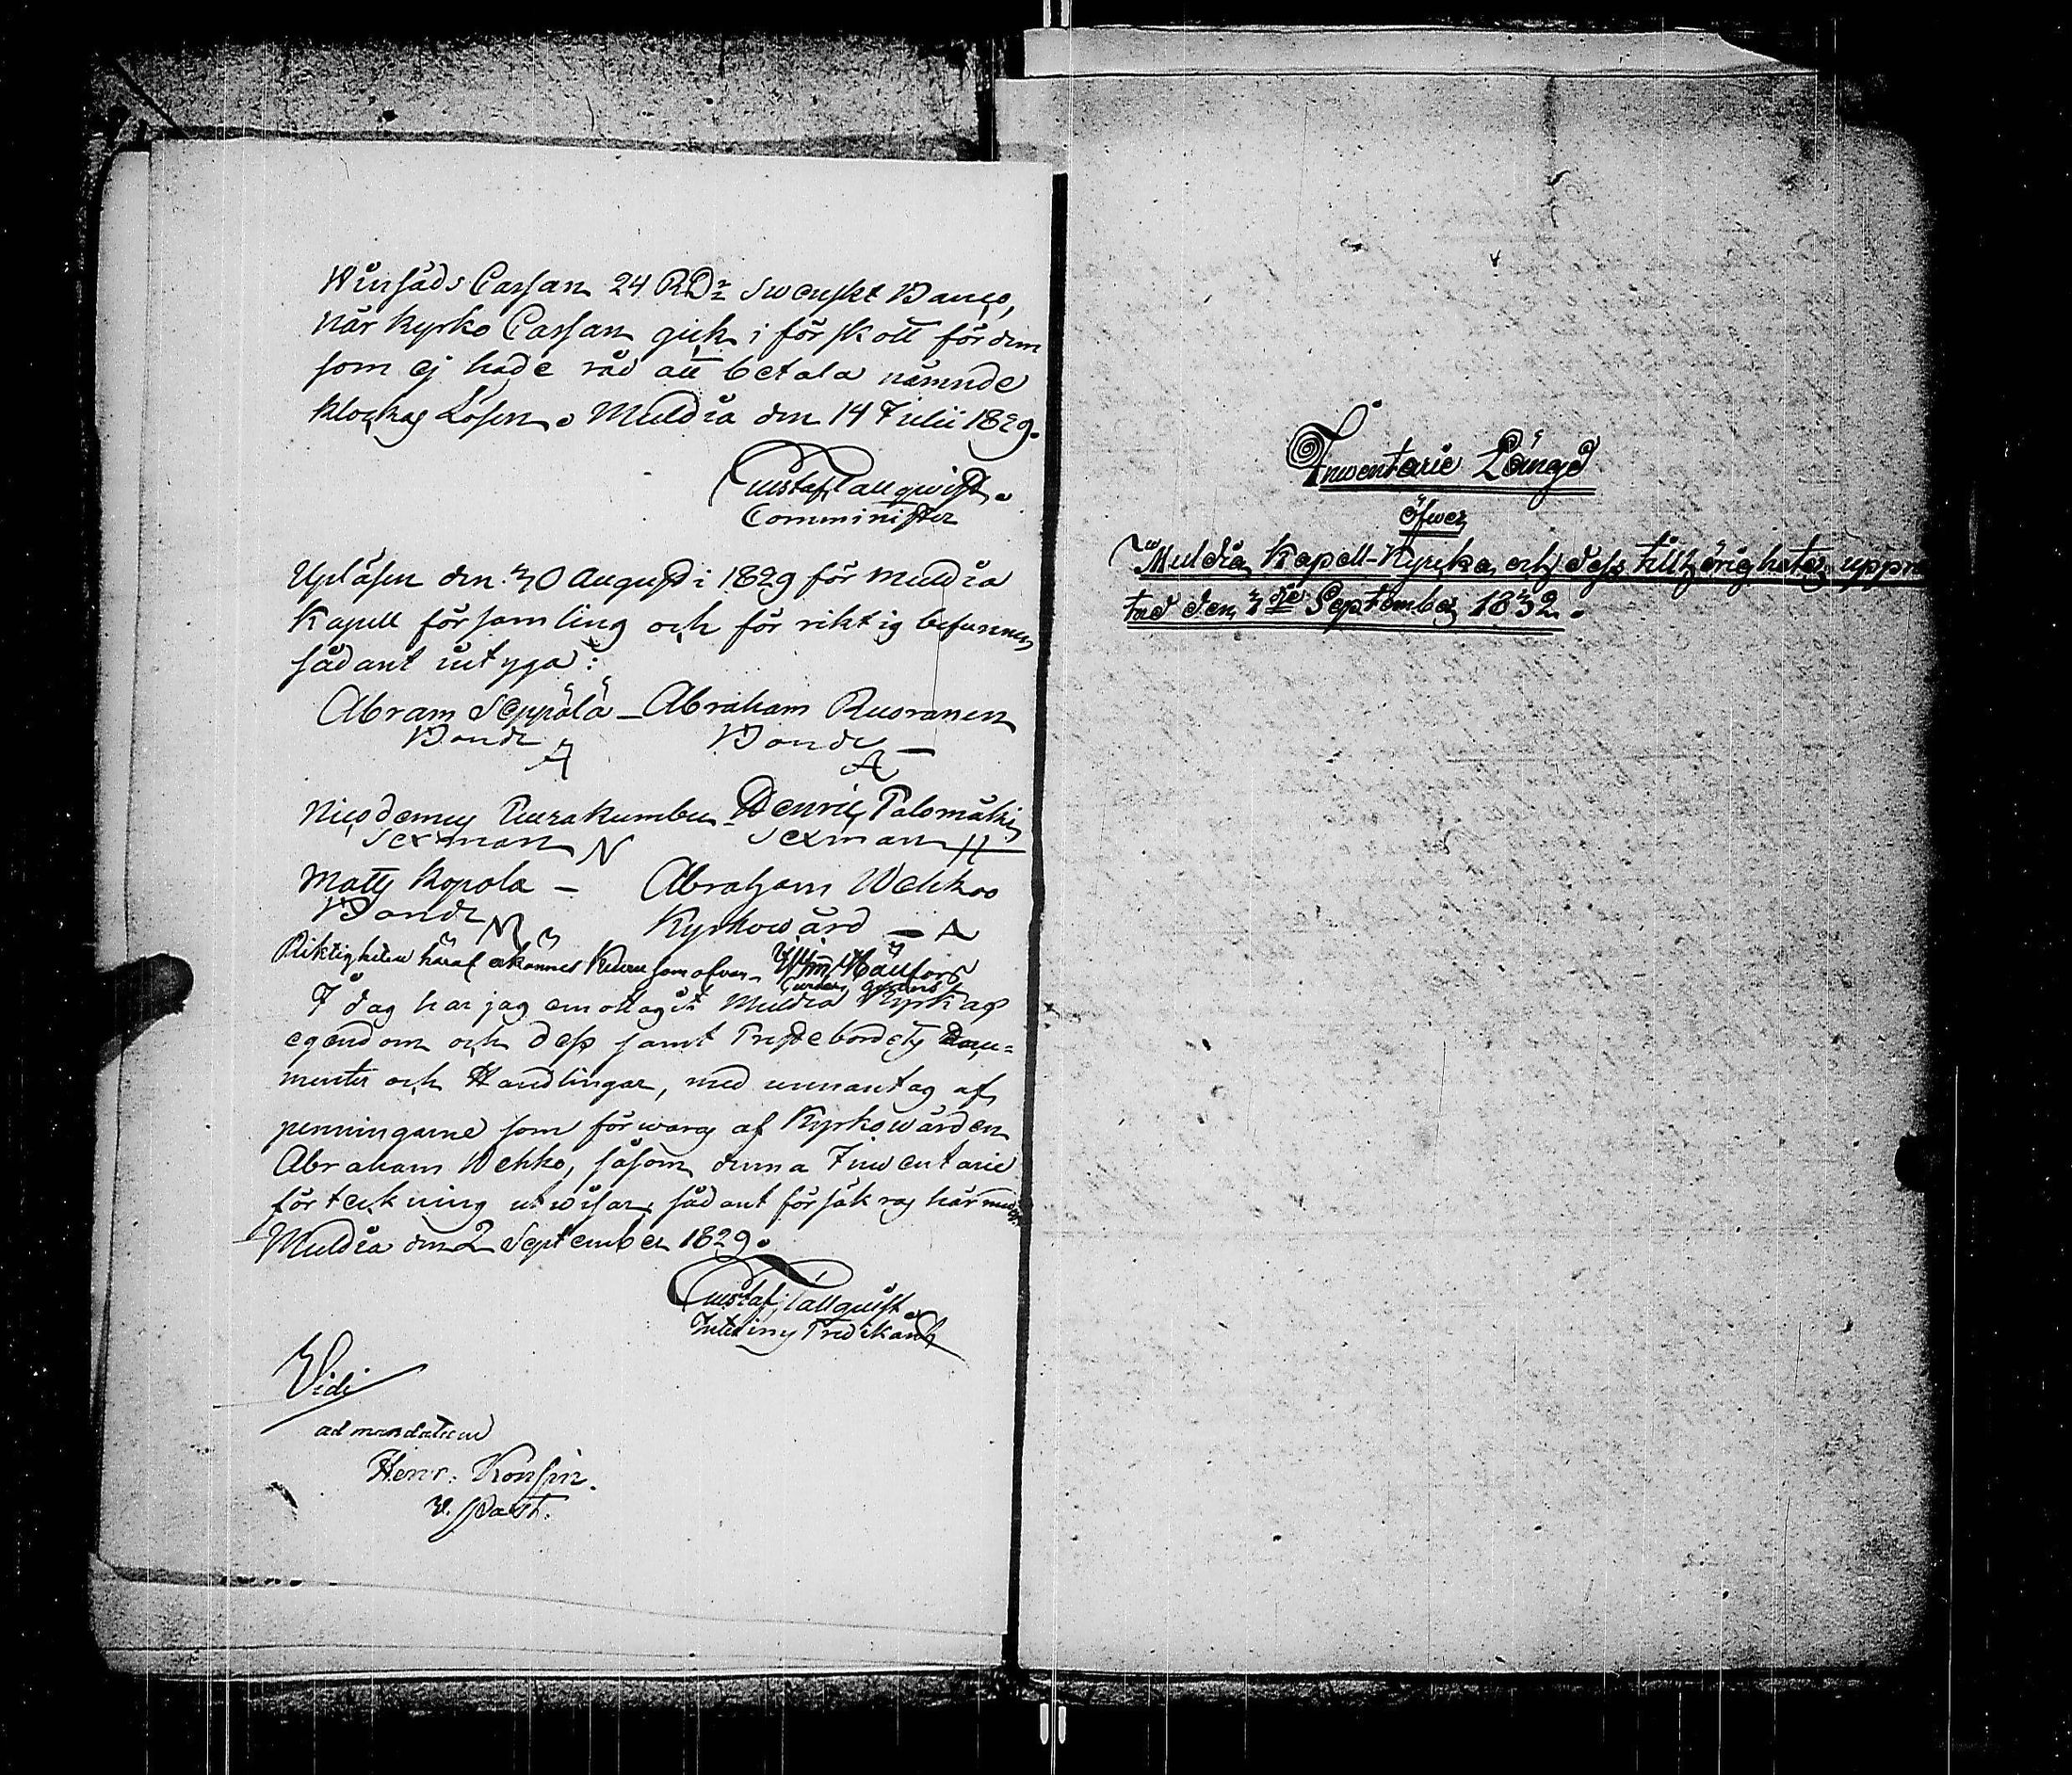 Winsäds Cassan 24 RDr Swenskt Banco,
när Kyrko Cassan gick i förskott för dem
som ej hade råd att betala nämnde
klockas Lösen. Muldia den 14 Julii 1829.
Gustaf Tallqwist.
Comminister
Upläsen den 30 Augusti 1829 för Muldia
Kapell församling och för riktig befunnen
sådant intyga:
Abram Seppälä – Abraham Rusranen
Bonde A Bonde – A
Nicodemus Purakumbu Henric Palomäki
Sexman N Sexman H
Matts Kopola – Abraham Wehkoo
Bonde M Kyrkowärd – A
Riktigheten häraf erkännes som ofvan
I dag har jag emottagit Muldia Kyrkas
egendom och dess samt Prestebordets Docu=
menter och Handlingar, med unnantag af
penningarne som förwaras af Kyrkowärden
Abraham Wehko, såsom denna Inwentarie
förtekning utwisar, sådant försäkras härmed.
Muldia den 2 September 1829.
Gustaf Tallquist
Predikant
Vidi
ad mandatum
Henr. Konsin.
V. Past.
Inwentarie Längd
öfwer
Muldia Kapell-Kyrcka och dess tillhörigheter uppr
tad den 3die September 1832.